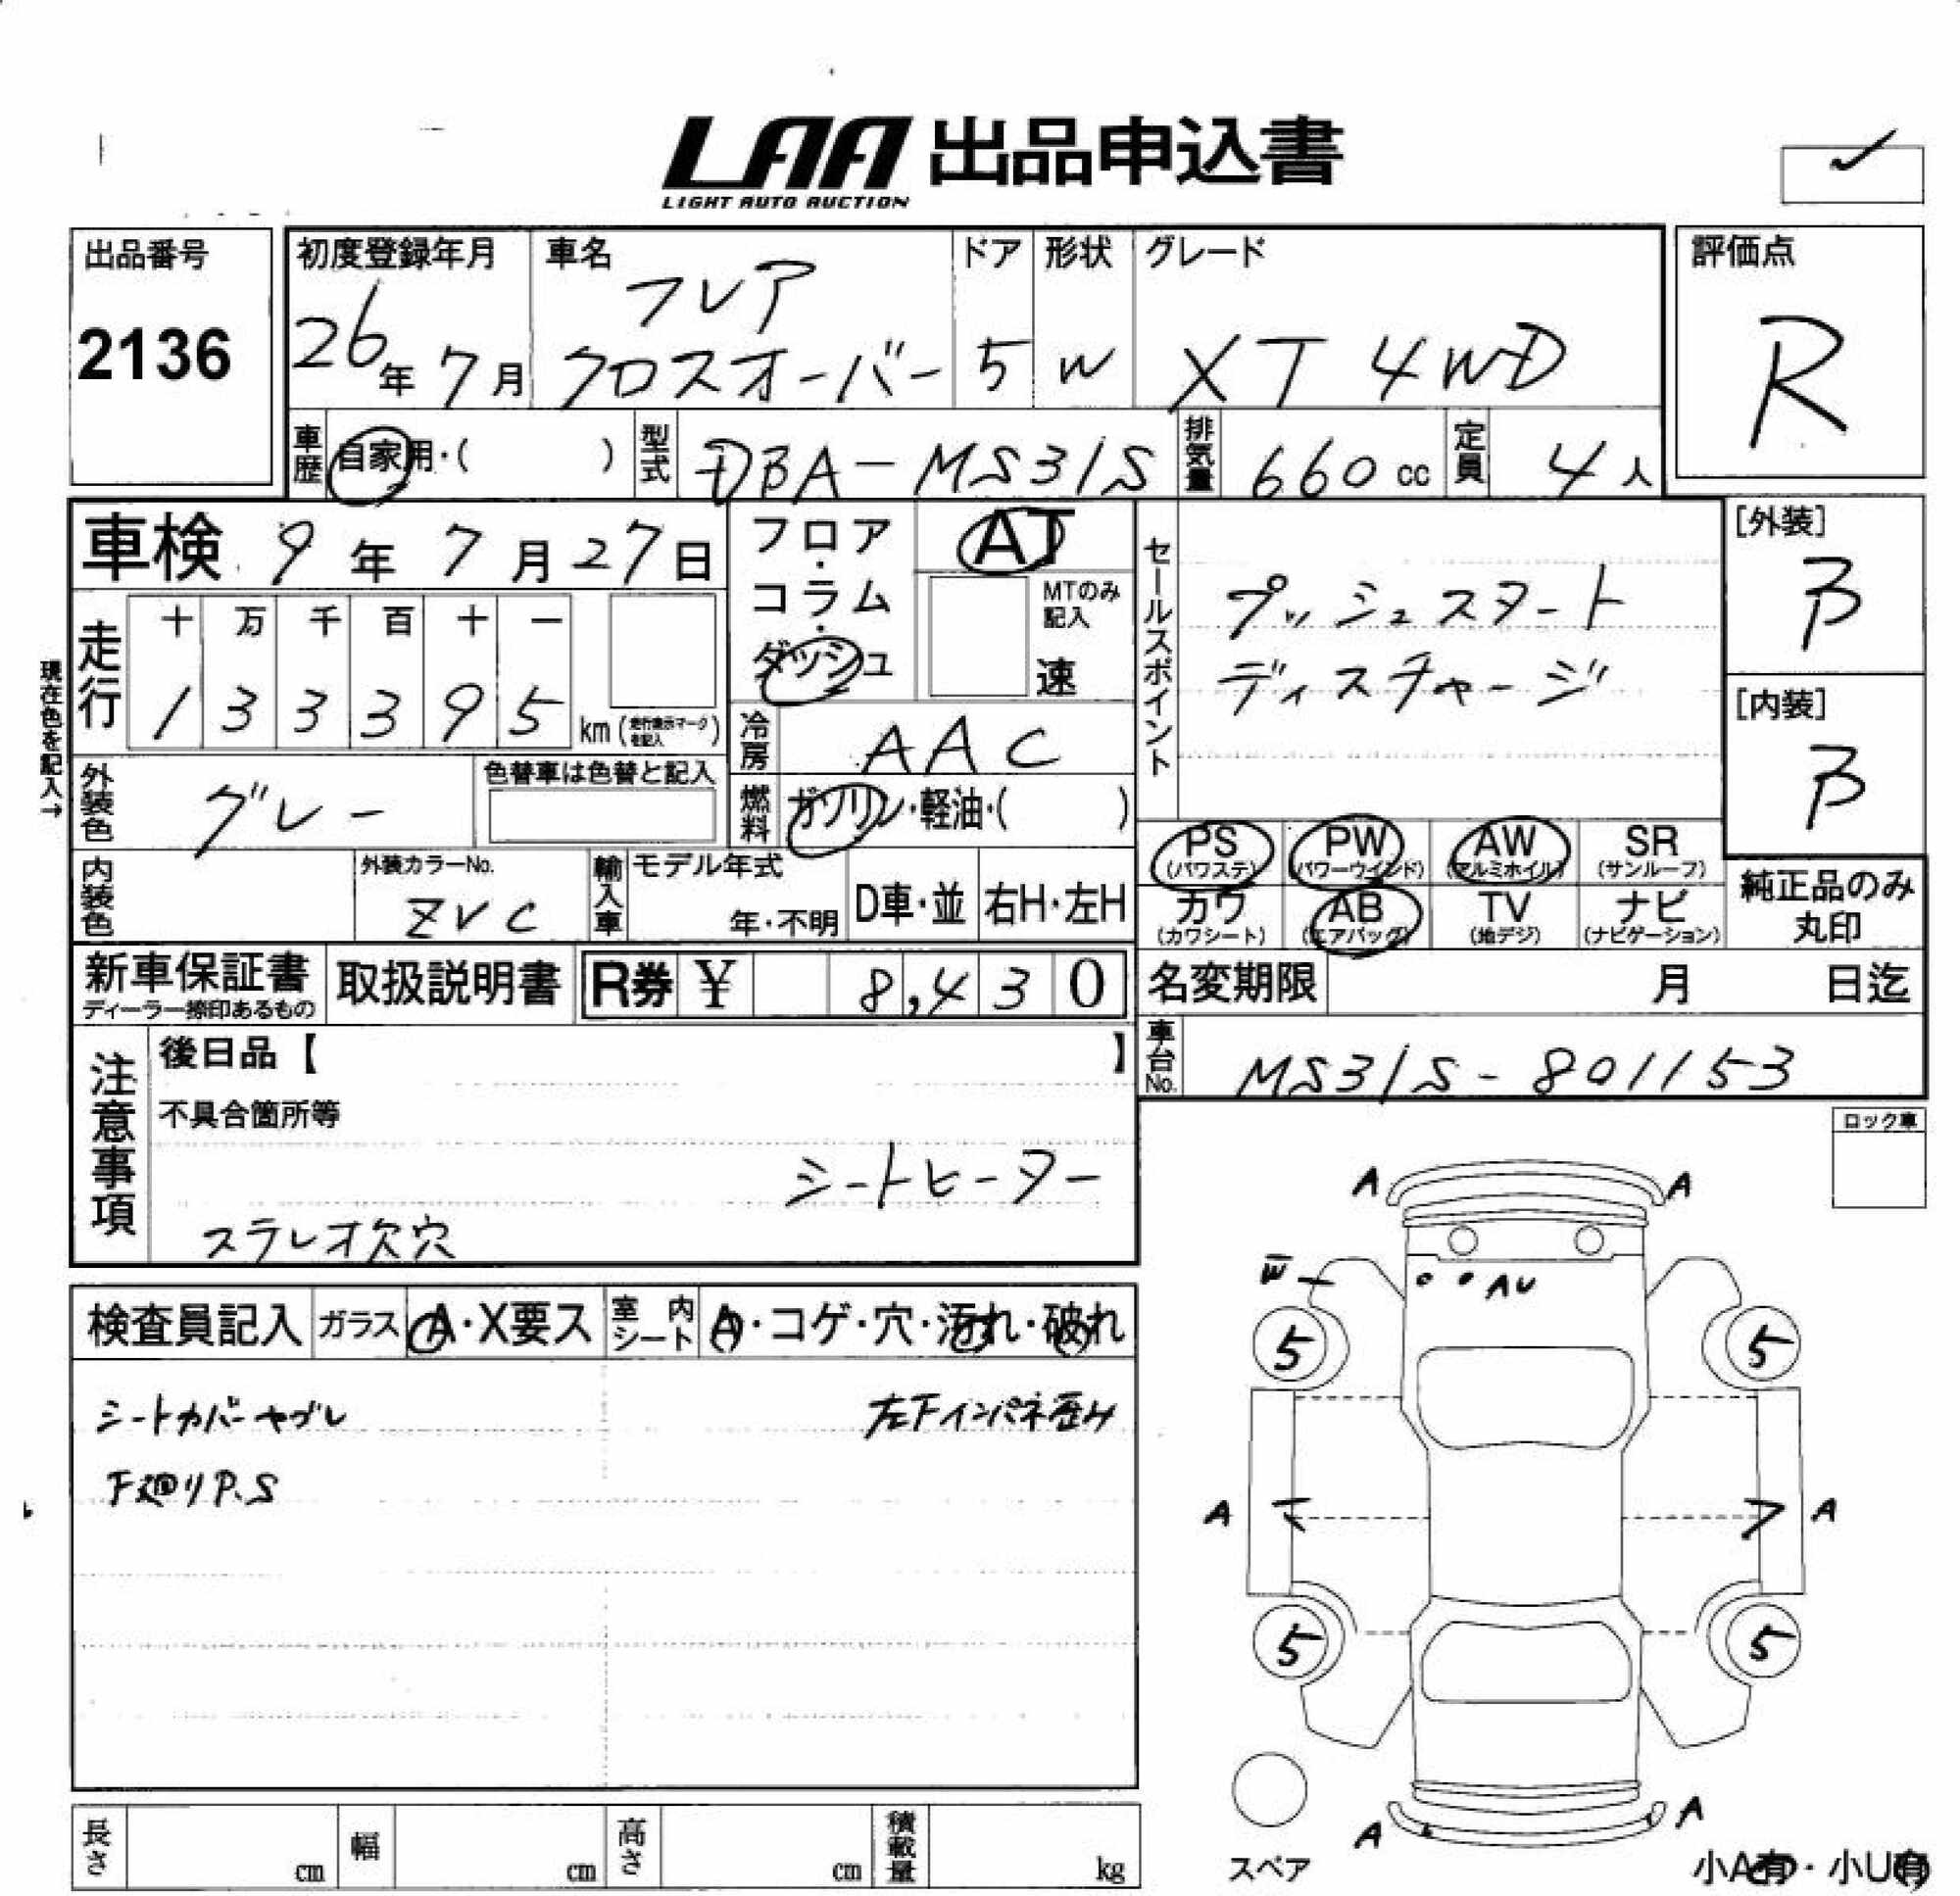 LAA 出品申込書
LIGHT AUTO AUCTION
出品番号
2136
初度登録年月
26年 7月
車名
フレア
クロスオーバー
ドア
5
形状
W
グレード
XT 4WD
評価点
R
車歴
自家用・( )
型式
DBA-MS31S
排気量
660 cc
定員
4人
車検 9年 7月 27日
フロア・コラム・ダッシュ
AT
MTのみ記入
速
セールスポイント
プッシュスタート
ディスチャージ
[外装]
B
[内装]
B
現在色を記入→
走行
十 万 千 百 十 一
1 3 3 3 9 5 km (走行表示マークを記入)
冷房
AAC
外装色
グレー
色替車は色替と記入
燃料
ガソリン・軽油・( )
PS (パワステ)
PW (パワーウインド)
AW (アルミホイル)
SR (サンルーフ)
内装色
外装カラーNo.
ZVC
輸入車
モデル年式
年・不明
D車・並
右H・左H
カワ (カワシート)
AB (エアバッグ)
TV (地デジ)
ナビ (ナビゲーション)
純正品のみ
丸印
新車保証書
ディーラー捺印あるもの
取扱説明書
R券 ¥ 8,430
名変期限 月 日迄
車台No.
MS31S-801153
注意事項
後日品【 】
不具合箇所等
シートヒーター
ステレオ欠穴
ロック車
検査員記入
ガラス
A・X要ス
室内シート
A・コゲ・穴・汚れ・破れ
シートカバーヤブレ
左下インパネ歪み
下廻りP.S
A A
W
AU
5 5
A A
5 5
A A
スペア
小A有・小U有
長さ cm
幅 cm
高さ cm
積載量 kg